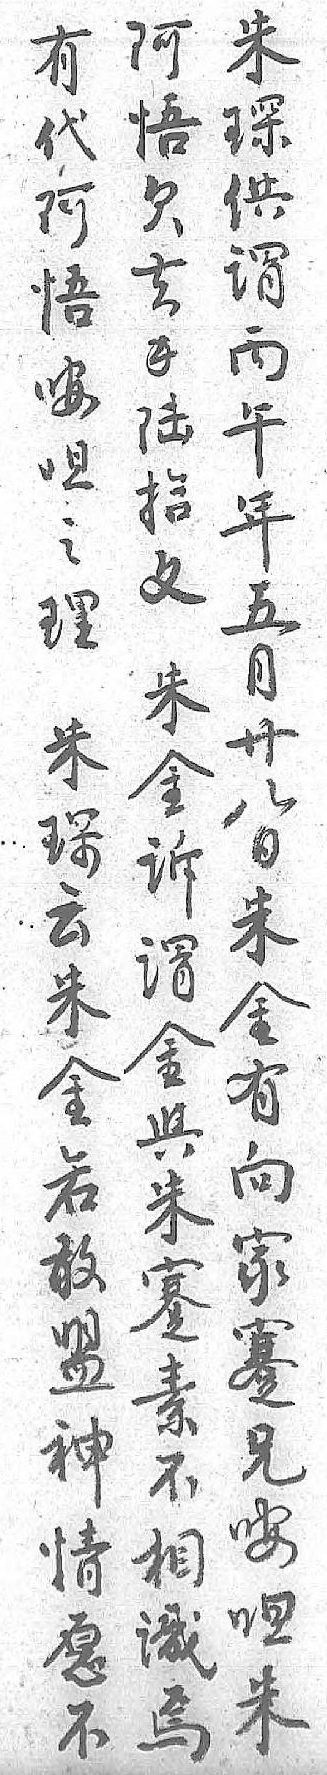 朱琛供謂丙午年五月廿八日朱金有向家蹇兄㖠呾朱
阿悟欠去手陆拾文　朱金訴謂金與朱蹇素不相識焉
有代阿悟㖠呾之理　朱琛云朱金若敢盟神情愿不